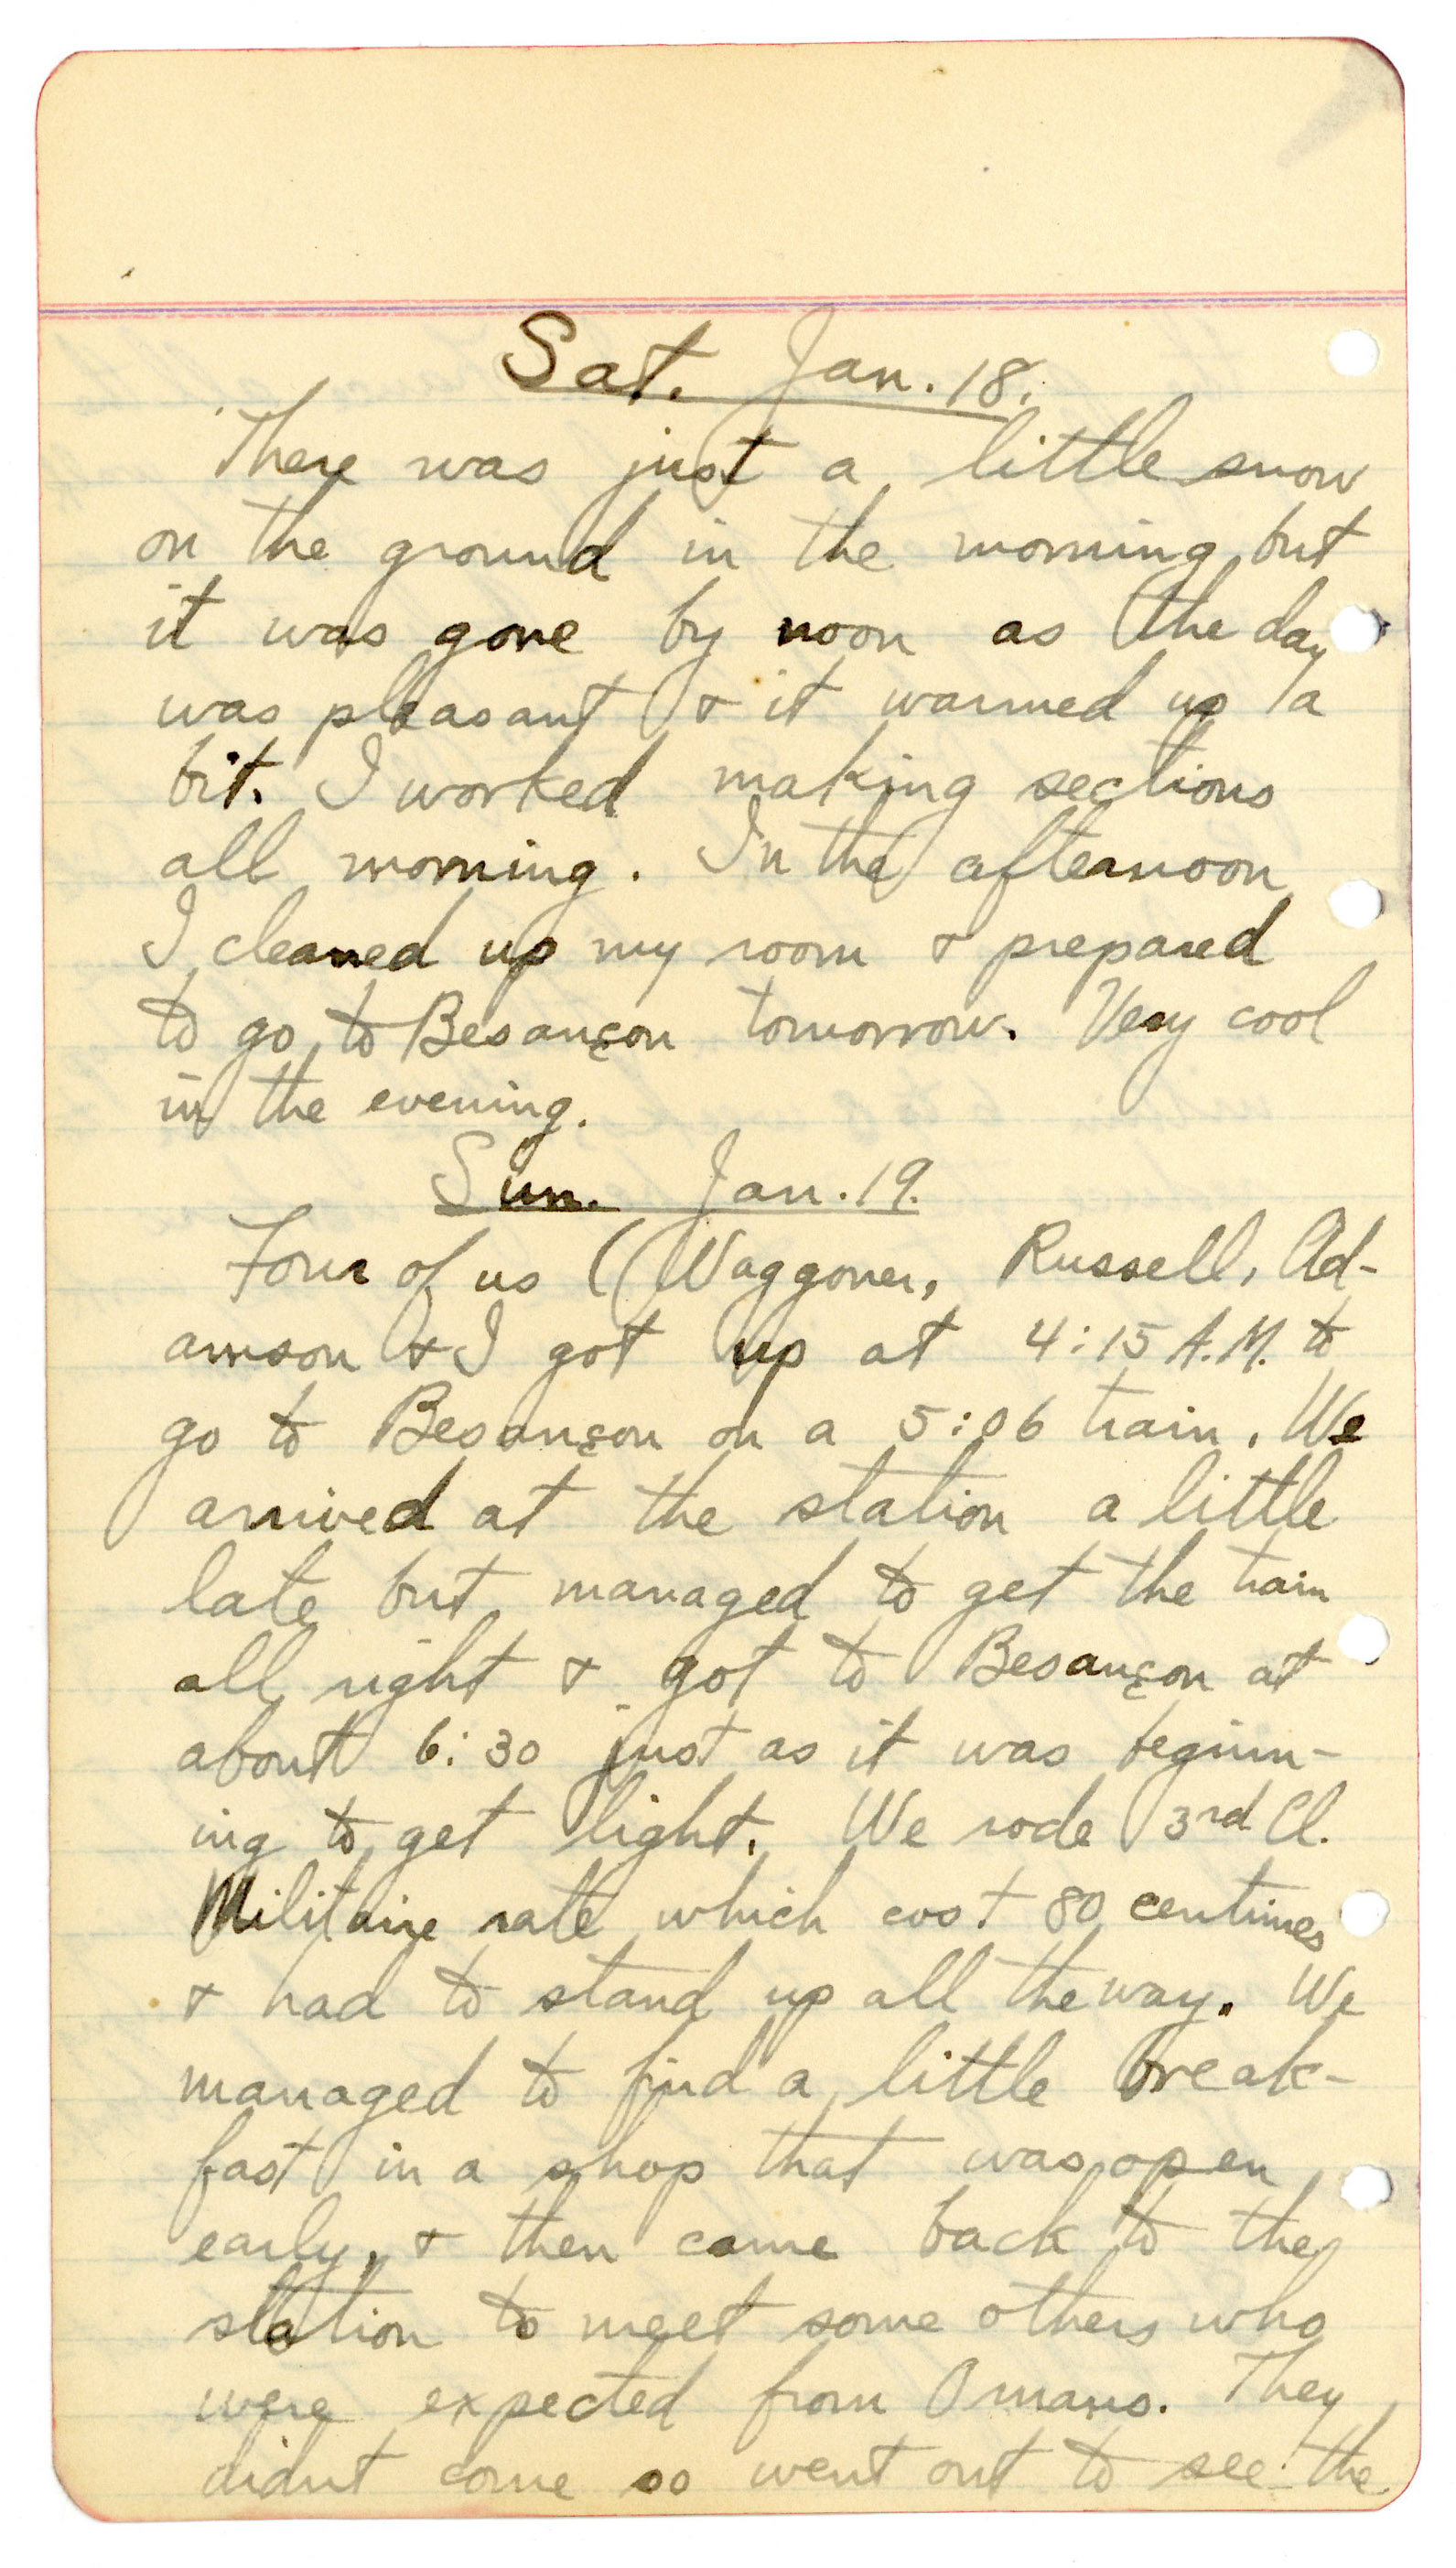 Sat. Jan. 18.
There was just a little snow
on the ground in the morning but
it was gone by noon as the day
was pleasant & it warmed up a
bit. I worked making sections
all morning. In the afternoon
I cleaned up my room & prepared
to go to Besançon tomorrow. Very cool
in the evening.
Sun. Jan. 19.
Four of us (Waggoner, Russell, Ad-
amson & I got up at 4:15 A.M. to
go to Besançon on a 5:06 train. We
arrived at the station a little
late but managed to get the train
all right & got to Besançon at
about 6:30 just as it was beginn-
ing to get light. We rode 3rd Cl.
Militaire rate which cost 80 centimes
& had to stand up all the way. We
managed to find a little break-
fast in a shop that was open
early, & then came back to the
station to meet some others who
were expected from Ornans. They
didnt come so went out to see the